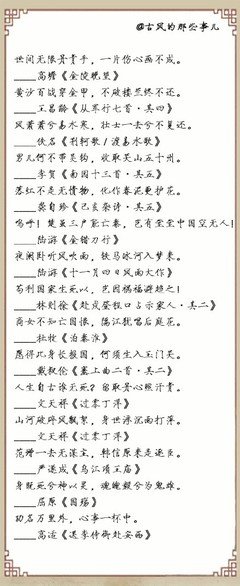 @古风的那些事儿
世间无限丹青手，一片伤心画不成。
____高蟾《金陵晚望》
黄沙百战穿金甲，不破楼兰终不还。
____王昌龄《从军行七首·其四》
风萧萧兮易水寒，壮士一去兮不复还。
____佚名《荆轲歌/渡易水歌》
男儿何不带吴钩，收取关山五十州。
____李贺《南园十三首·其五》
落红不是无情物，化作春泥更护花。
____龚自珍《己亥杂诗·其五》
呜呼！楚虽三户能亡秦，岂有堂堂中国空无人！
____陆游《金错刀行》
夜阑卧听风吹雨，铁马冰河入梦来。
____陆游《十一月四日风雨大作》
苟利国家生死以，岂因祸福避趋之！
____林则徐《赴戍登程口占示家人·其二》
商女不知亡国恨，隔江犹唱后庭花。
____杜牧《泊秦淮》
愿得此身长报国，何须生入玉门关。
____戴叔伦《塞上曲二首·其二》
人生自古谁无死？留取丹心照汗青。
____文天祥《过零丁洋》
山河破碎风飘絮，身世浮沉雨打萍。
____文天祥《过零丁洋》
范增一去无谋主，韩信原来是逐臣。
____严遂成《乌江项王庙》
身既死兮神以灵，魂魄毅兮为鬼雄。
____屈原《国殇》
功名万里外，心事一杯中。
____高适《送李侍御赴安西》